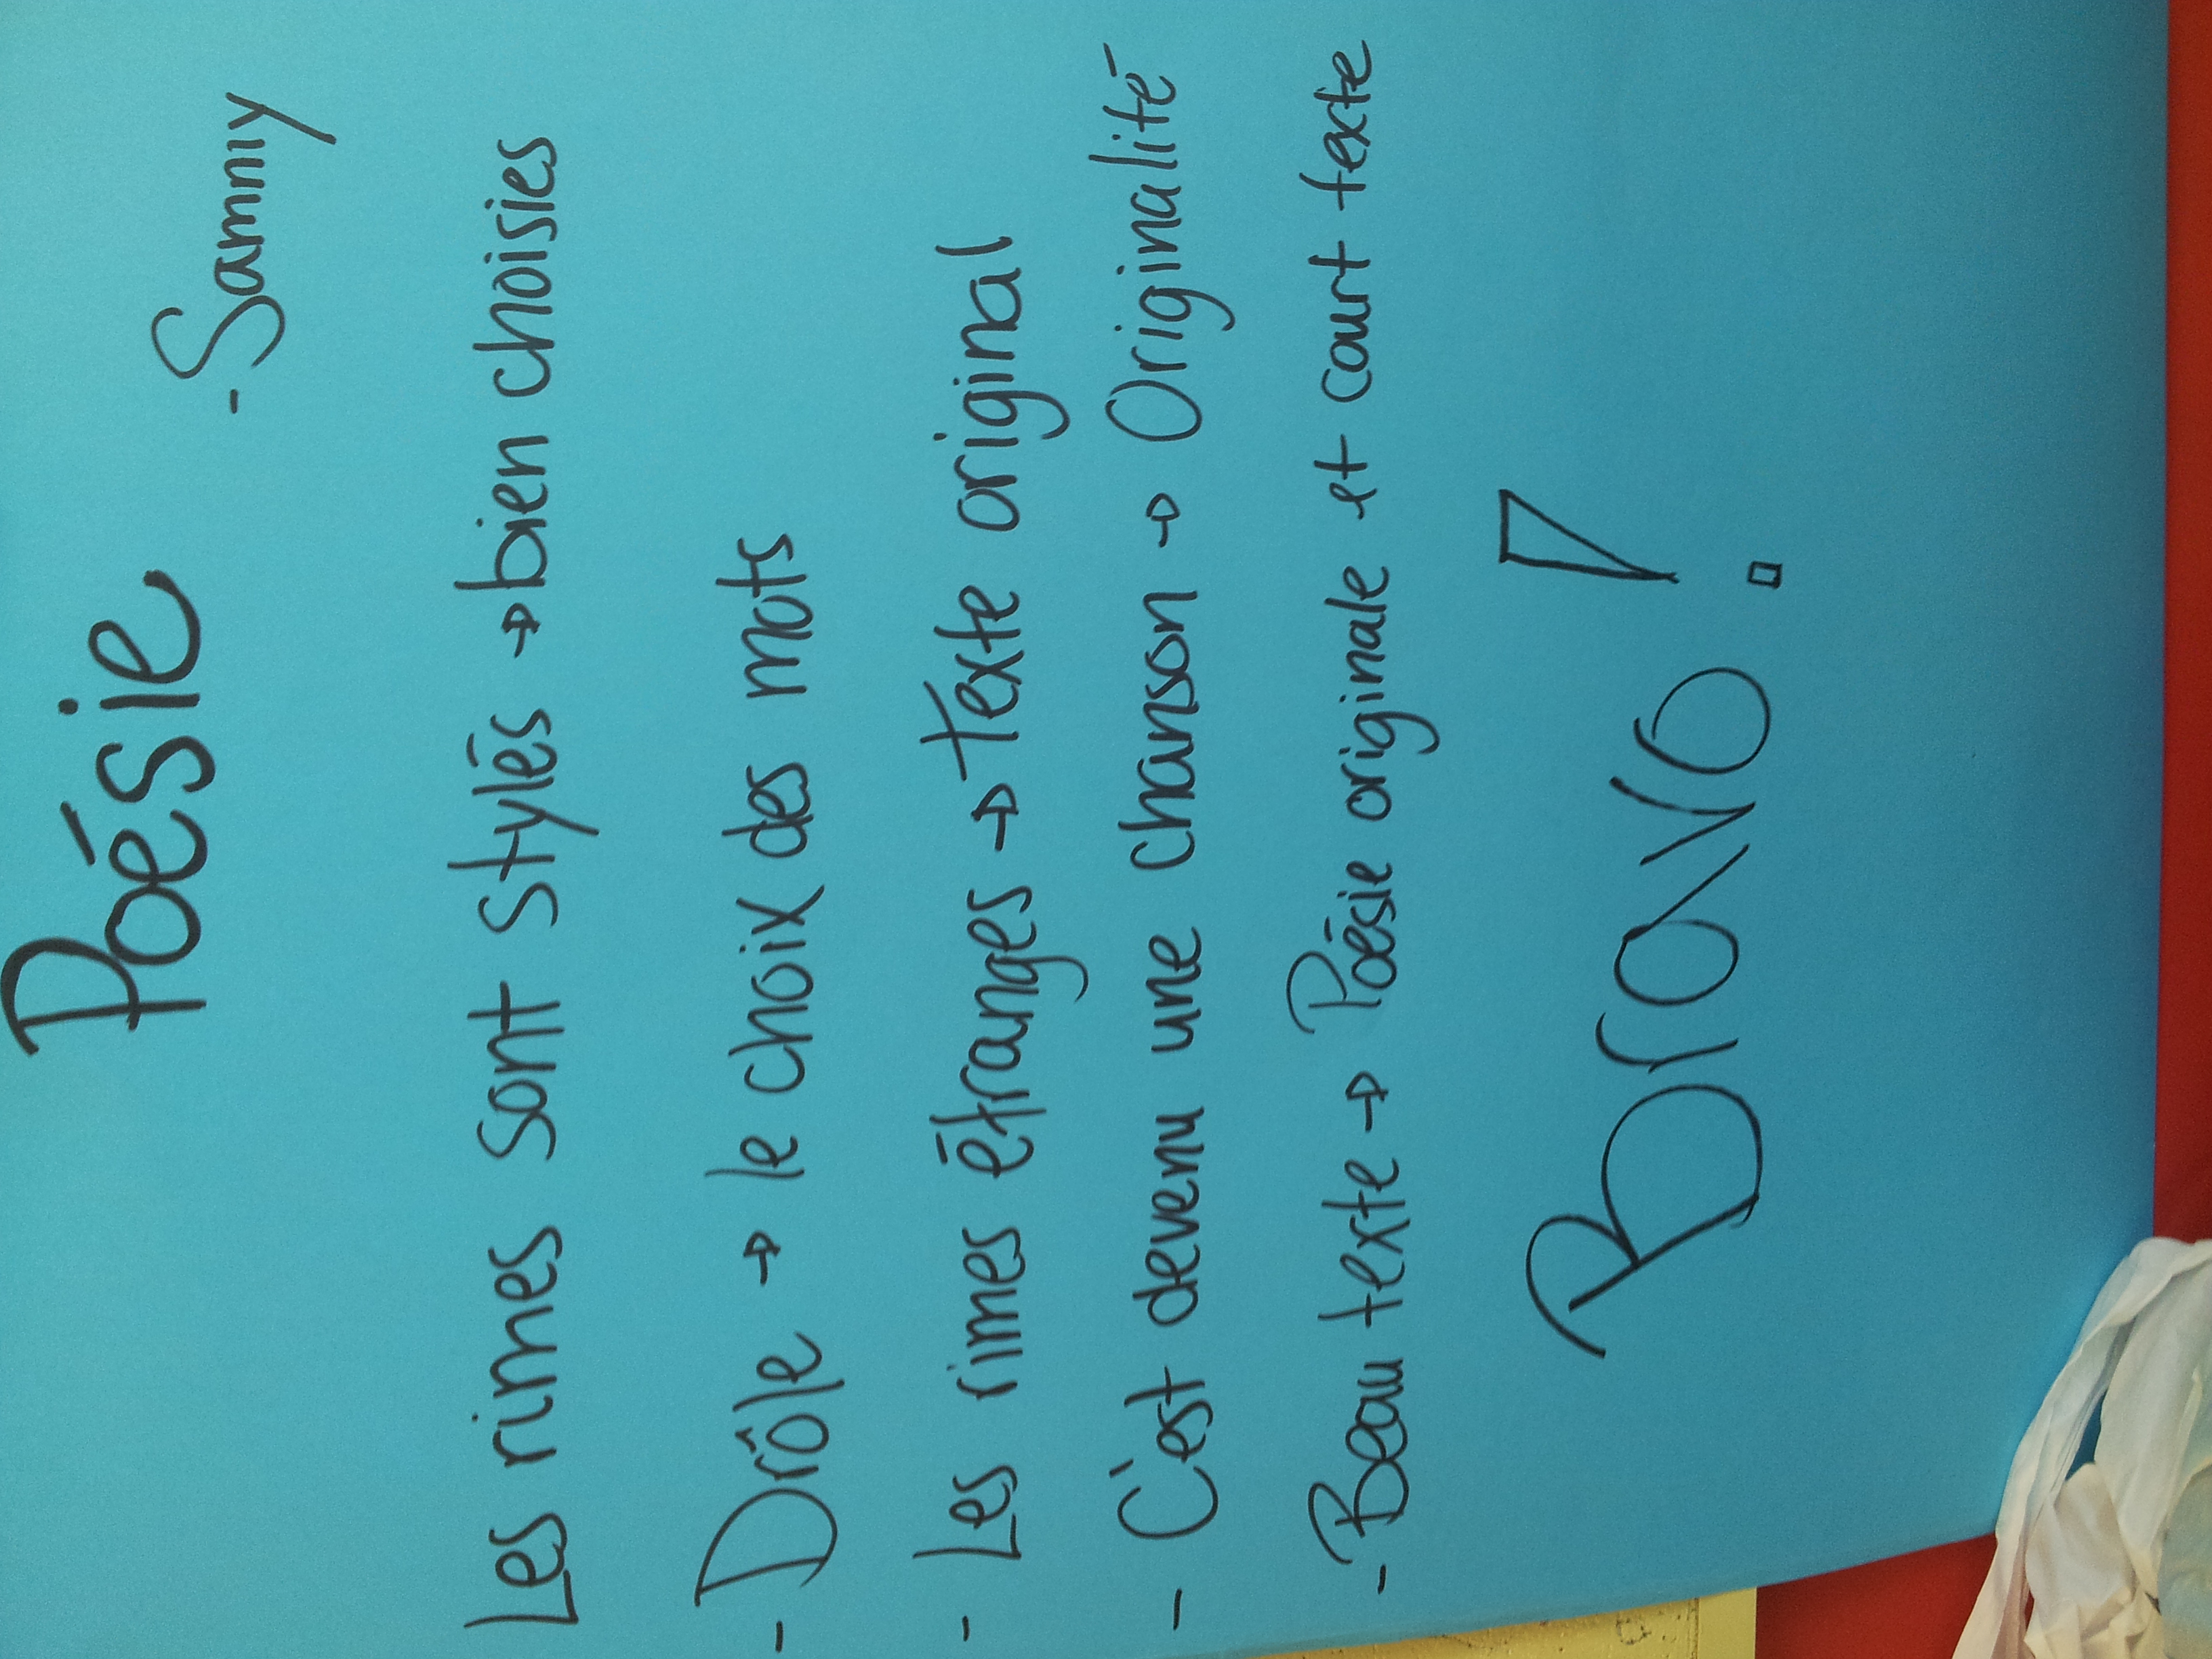 Poésie
- Sammy
Les rimes sont stylés → bien choisies
- Drôle → le choix des mots
- Les rimes étranges → Texte original
- C'est devenu une chanson → Originalité
- Beau texte → Poésie originale et court texte
Bravo!